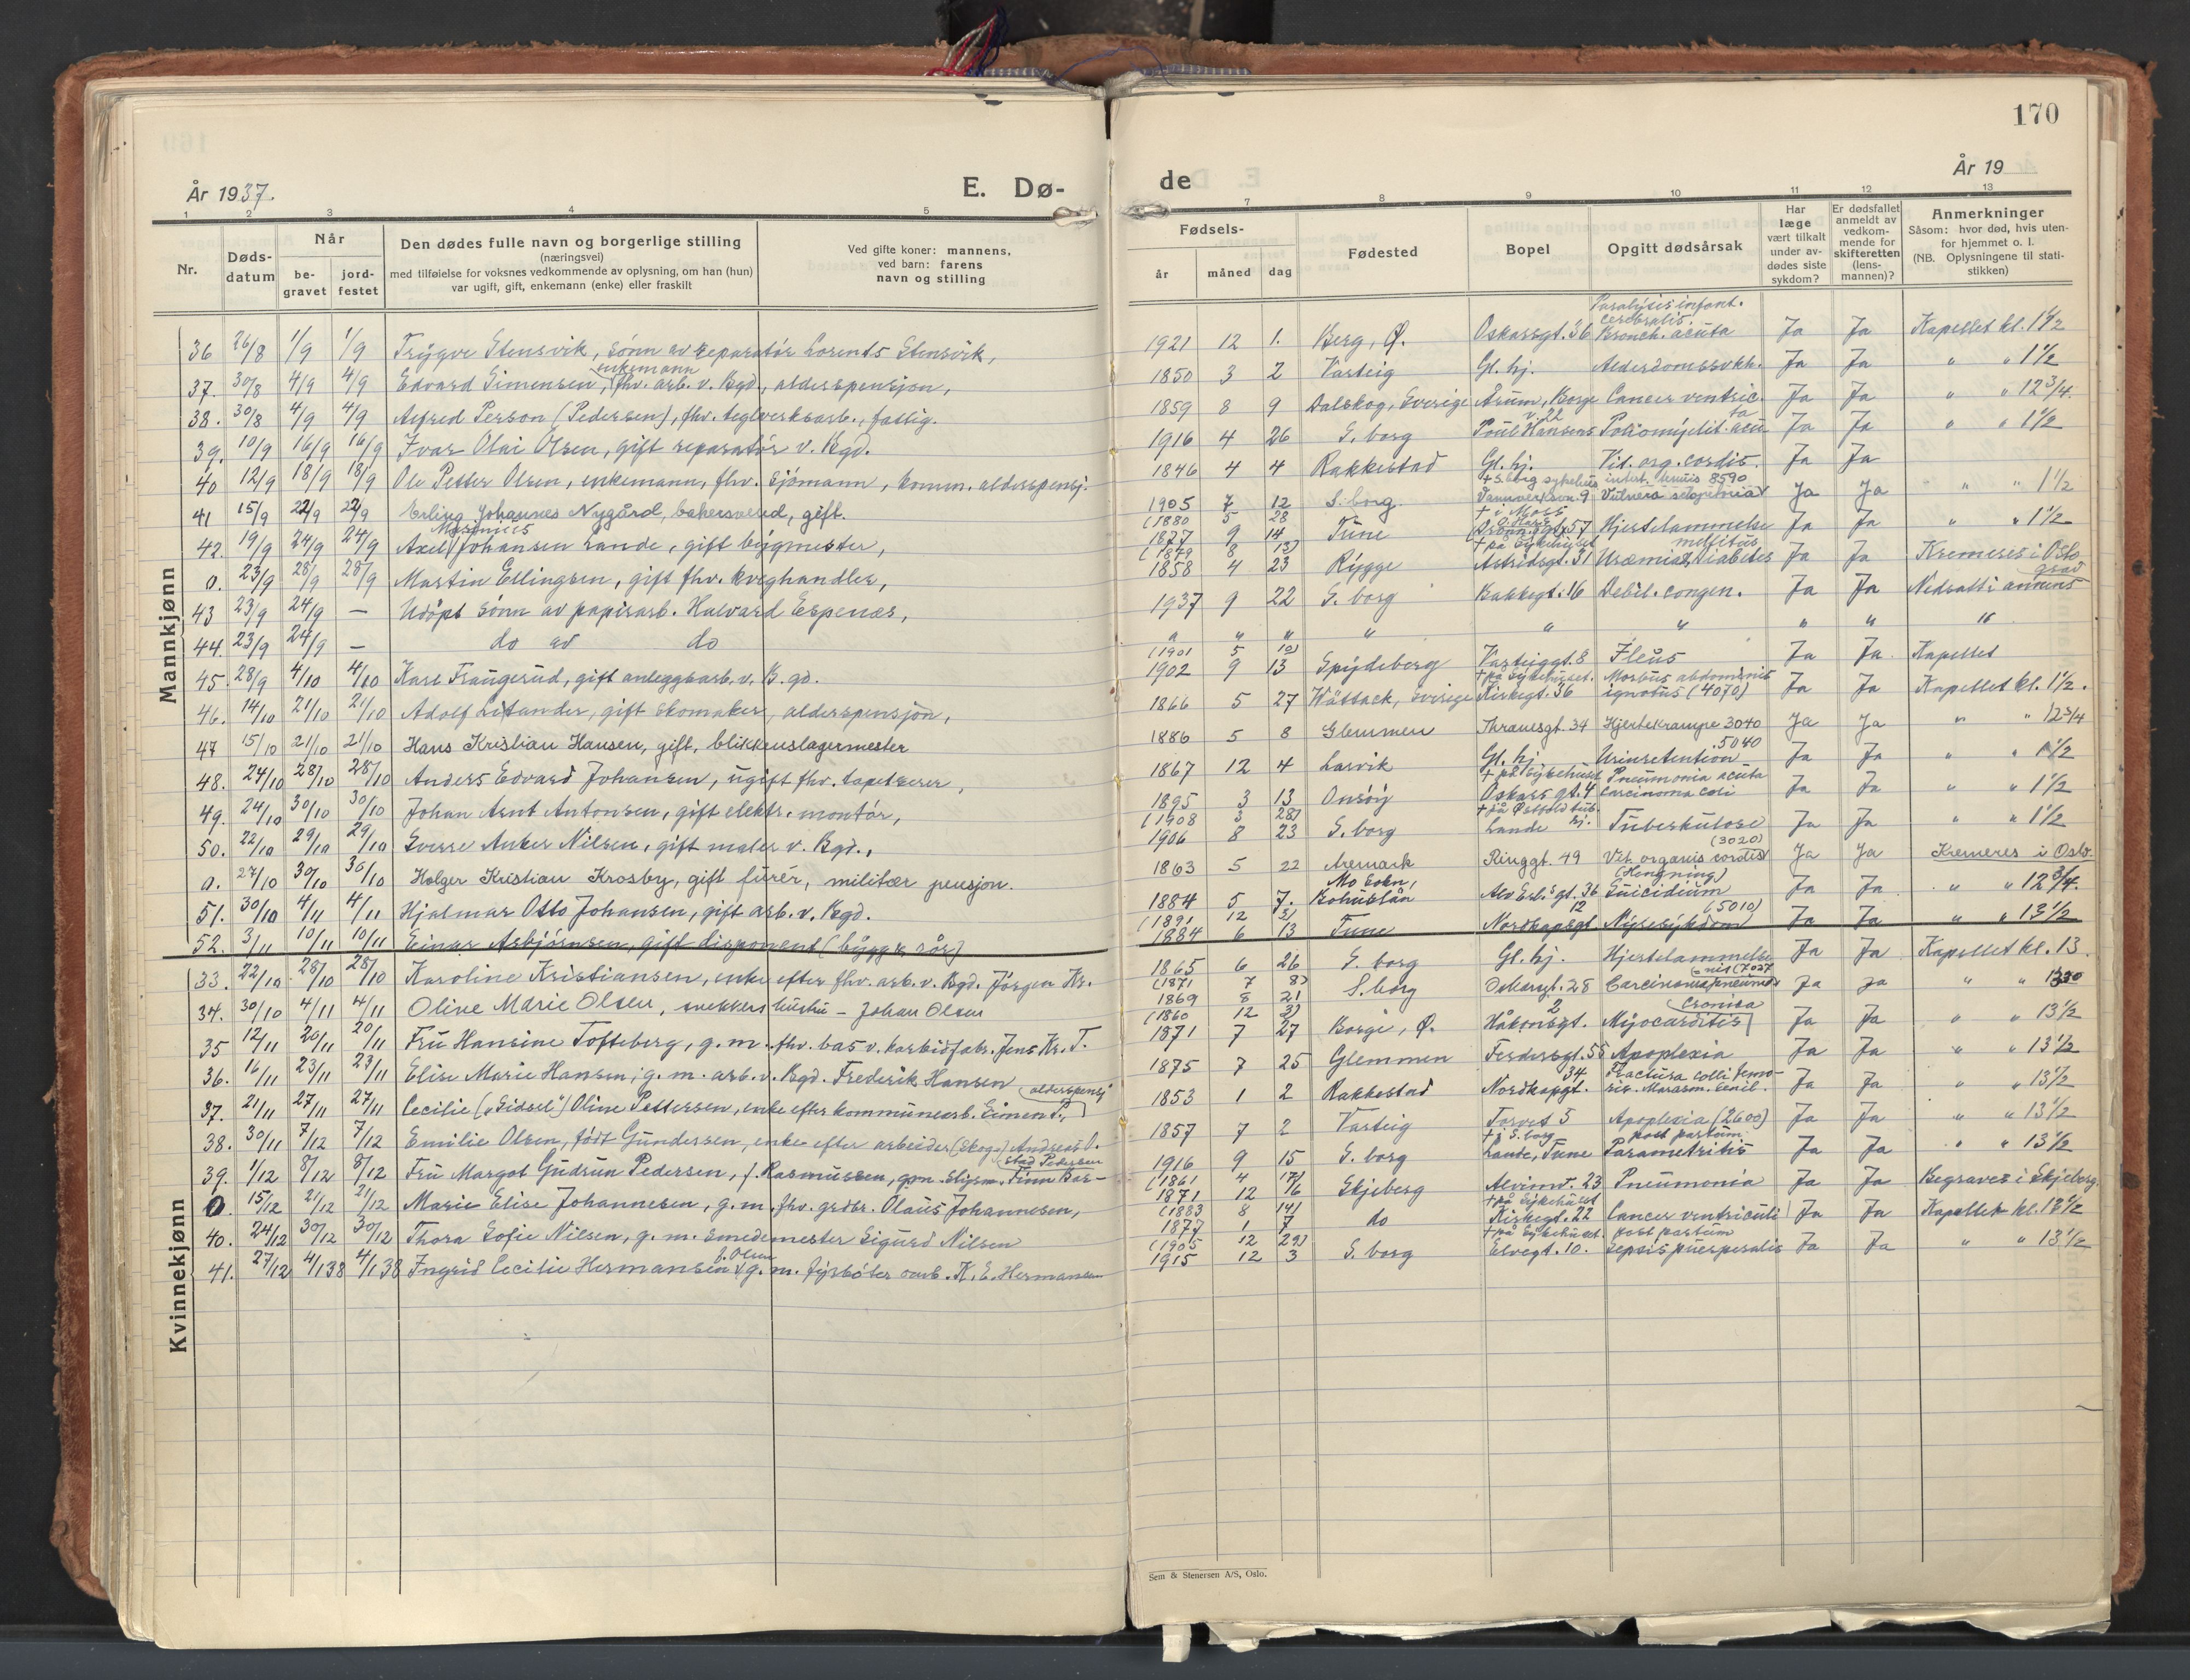 170
År 1937.
E. Dø-
de
År 19
1 2 3 4 5
7 8 9 10 11 12 13
Nr.
Døds-datum
Når
be-gravet
jord-festet
Den dødes fulle navn og borgerlige stilling
(næringsvei)
med tilføielse for voksnes vedkommende av oplysning, om han (hun)
var ugift, gift, enkemann (enke) eller fraskilt
Ved gifte koner: mannens,
ved barn: farens
navn og stilling
Fødsels-
år måned dag
Fødested
Bopel
Opgitt dødsårsak
Har læge vært tilkalt under av-dødes siste sykdom?
Er dødsfallet anmeldt av vedkom-mende for skifteretten (lens-mannen)?
Anmerkninger
Såsom: hvor død, hvis uten-
for hjemmet o. l.
(NB. Oplysningene til stati-
stikken)
Mannkjønn
36 26/8 1/9 1/9 Trygve Stensvik, sønn av reparatør Lorents Stensvik, 1921 12 1. Berg, Ø. Oskarsgt. 36 Paralysis infant. cerebralis. Bronch. acuta Ja Ja Kapellet kl. 1 1/2
37. 30/8 4/9 4/9 Edvard Simensen, enkemann fhv. arb. v. Bgd., alderspensjon, 1850 3 2 Varteig Gl. hj. Alderdomssvkh. Ja Ja " " 1 1/2
38. 30/8 4/9 4/9 Alfred Person (Pedersen), fhv. teglverksarb., fattig. 1859 8 9 Dalskog, Sverige Årum, Borge Cancer ventric. Ja Ja " " 12 3/4.
39. 10/9 16/9 16/9 Ivar Olai Olsen, gift reparatør v. Bgd. 1916 4 26 S. borg Poul Hansens v. 22 Poliomyelit. acuta Ja Ja " " 1 1/2
40 12/9 18/9 18/9 Ole Petter Olsen, enkemann, fhv. sjømann, komm. alderspensj. 1846 4 4 Rakkestad Gl. hj. Vit. org. cordis. Ja Ja
41 15/9 22/9 22/9 Erling Johannes Nygård, bakersvend, gift. 1905 7 12 S. borg. + S. borg sykehus 9 8590 Ja Ja " " 1 1/2
42. 19/9 24/9 24/9 Axel Marinius Johansen Lande, gift bygmester, (1880 5 28 1877 9 14 Tune + i Moss 57 Hjertelammelse Ja Ja " " 1 1/2
0. 23/9 28/9 28/9 Martin Ellingsen, gift fhv. kveghandler, (1849 8 13) 1858 4 23 Rygge + på sykehuset Astridsgt. 31 Uræmia, Diabetes mellitus Ja Ja Kremeres i Oslo
43 23/9 24/9 — Udøpt sønn av papirarb. Halvard Espenæs, 1937 9 22 S. borg Bakkegt. 16 Debil. congen. Ja Ja Nedsatt i annens grav
44. 23/9 24/9 — do av do " " " " " " " " "
45. 28/9 4/10 4/10 Kare Fraugerud, gift anleggsarb. v. B.gd. (1901 5 10) 1902 9 13 Spydeberg Varteiggt. 8 Ileus Ja Ja Kapellet
46. 14/10 21/10 21/10 Adolf Litander, gift skomaker, alderspensjon, 1866 5 27 Sverige + på sykehuset. Kirkegt. 36 Morbus abdominis ignotus (4070) Ja Ja Kapellet kl. 1 1/2.
47 15/10 21/10 21/10 Hans Kristian Hansen, gift, blikkenslagermester 1886 5 8 Glemmen Thranesgt. 34 Hjertekrampe 3040 Ja Ja " " 12 3/4
48. 24/10 28/10 28/10 Anders Edvard Johansen, ugift fhv. tapetserer, 1867 12 4 Larvik Gl. hj. Urinretention 5040 Ja Ja " " 1 1/2
49. 24/10 30/10 30/10 Johan Arnt Antonsen, gift elektr. montør, 1895 3 13 Onsøy + på sykehuset Oskars gt. 4 Pneumonia acuta Carcinoma coli Ja Ja " " 1 1/2
50. 22/10 29/10 29/10 Sverre Anker Nilsen, gift maler v. Bgd., (1908 3 28) 1906 8 23 S. borg + på Østfold tub. hj. Lande Tuberkulose Ja Ja " " 1 1/2
0. 27/10 30/10 30/10 Holger Kristian Krosby, gift furér, militær pensjon. 1863 5 22 Aremark Ringgt. 49 Vit. organis cordis (3020) Ja Ja Kremeres i Oslo.
51. 30/10 4/11 4/11 Hjalmar Otto Johansen, gift arb. v. Bgd. 1884 5 7. Mo sokn, Bohuslän Alv Erl.s gt. 36 (Hengning) Suicidium Ja Ja " " 12 3/4.
52. 3/11 10/11 10/11 Einar Asbjørnsen, gift disponent (bygg & rør) (1891 12 3) 1884 6 13 Tune Nordkapgt 12 Nyresykdom (5010) Ja Ja " " 13 1/2
Kvinnekjønn
33. 22/10 28/10 28/10 Karoline Kristiansen, enke efter fhv. arb. v. Bgd. Jørgen Kr. 1865 6 26 S. borg Gl. hj. Hjertelammelse Ja Ja Kapellet kl. 13.
34. 30/10 4/11 4/11 Olive Marie Olsen, snekkers hustru - Johan Olsen (1871 7 8) 1869 8 21 S. borg Oskarsgt. 28 Ja Ja " " 1330
35 12/11 20/11 20/11 Fru Hansine Tofteberg, g. m. fhv. bas v. karbidfabr. Jens Kr. T. (1860 12 3) 1871 7 27 Borge, Ø. Håkonsgt. 2 Myocarditis cronica Ja Ja " " 13 1/2
36. 16/11 23/11 23/11 Elise Marie Hansen, g. m. arb. v. Bgd. Frederik Hansen 1875 7 25 Glemmen Ferdersgt. 55 Apoplexia Ja Ja " " 13 1/2
37. 21/11 27/11 27/11 Cecilie ("Sissel") Oline Pettersen, enke efter kommunearb. Simen P., alderspensj 1853 1 2 Rakkestad Nordkapgt. 34 Fractura colli femoris. Marasm. senil. Ja Ja " " 13 1/2
38. 30/11 7/12 7/12 Emilie Olsen, født Gundersen, enke efter arbeider (skog-) Andreas O. 1857 7 2 Varteig Torvet 5 Apoplexia (2600) Ja Ja " " 13 1/2
39. 1/12 8/12 8/12 Fru Margot Gudrun Pedersen, f. Rasmussen, Finn Bar-stad Pedersen 1916 9 15 S. borg + i S. borg Lande, Tune post partum Parametritis Ja Ja " " 13 1/2
0. 15/12 21/12 21/12 Marie Elise Johannesen, g. m. fhv. grdbr. Olaus Johannesen, (1861 4 17) 1871 12 16 Skjeberg Alvimv. 23 Pneumonia Ja Ja Begraves i Skjeberg.
40. 24/12 30/12 30/12 Thora Sofie Nilsen, g. m. smedemester Sigurd Nilsen (1883 8 14) 1877 1 7 do + på sykehuset Kirkegt. 22 Cancer ventriculi Ja Ja Kapellet kl. 13 1/2
41. 27/12 4/1 38 4/1 38 Ingrid Cecilie Hermansen f. Olsen g. m. fyrbøter K. E. Hermansen (1905 12 29) 1915 12 3 S. borg + på sykehuset. Elvegt. 10. post partum Sepsis puerperalis Ja Ja " " 13 1/2
Sem & Stenersen A/S, Oslo.